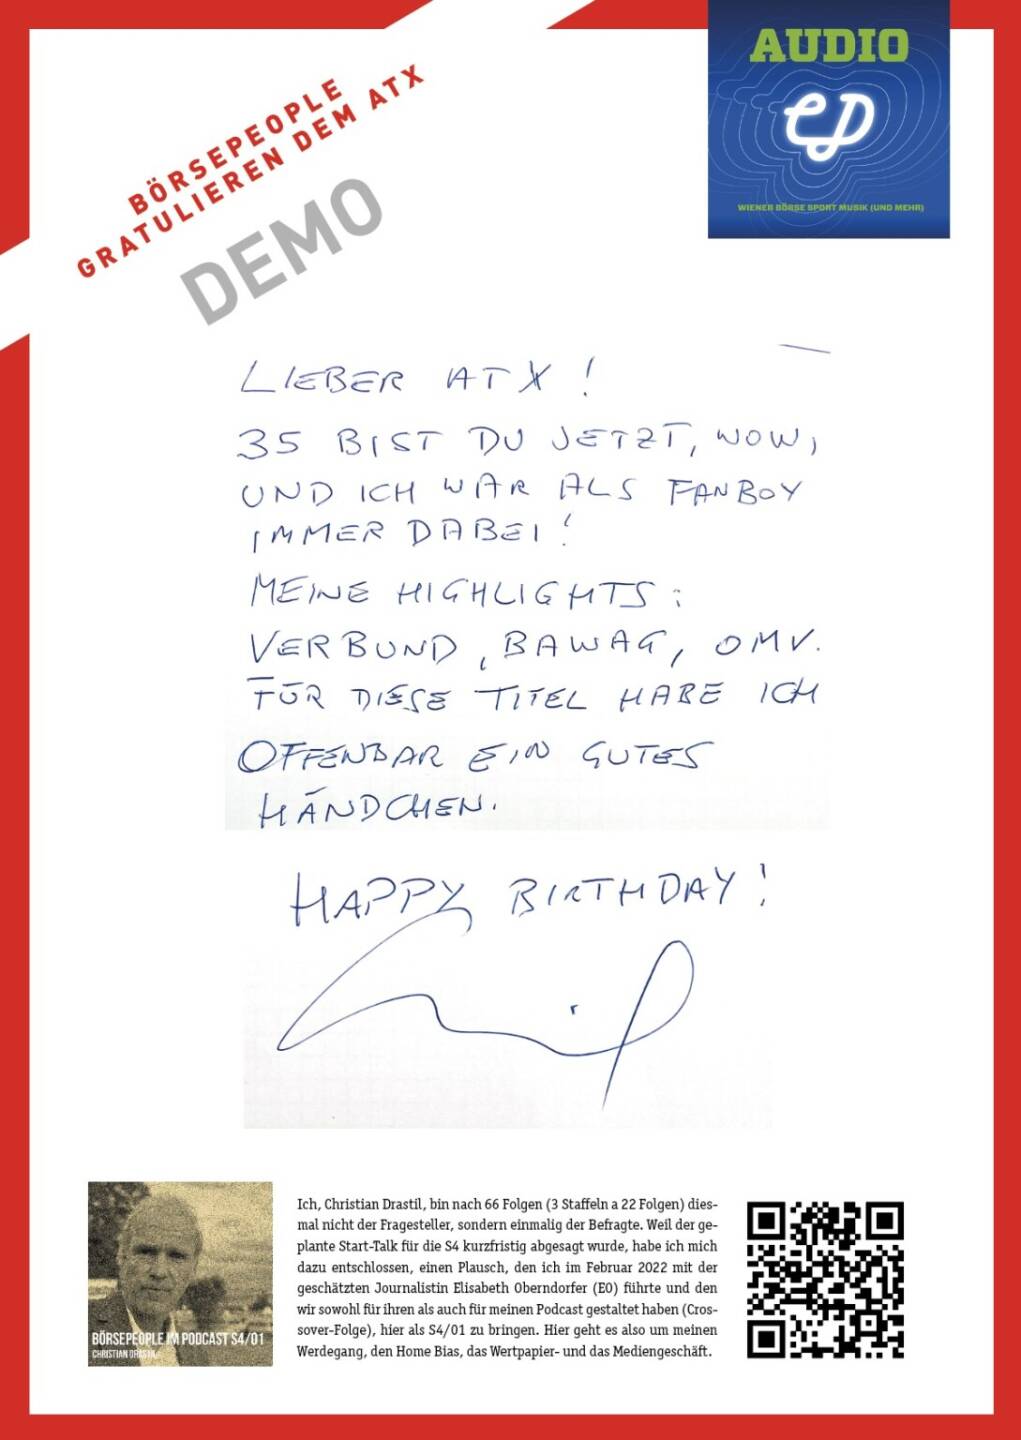 BÖRSEPEOPLE
GRATULIEREN DEM ATX
DEMO
AUDIO
CD
WIENER BÖRSE SPORT MUSIK (UND MEHR)
LIEBER ATX!
35 BIST DU JETZT, WOW,
UND ICH WAR ALS FANBOY
IMMER DABEI!
MEINE HIGHLIGHTS:
VERBUND, BAWAG, OMV.
FÜR DIESE TITEL HABE ICH
OFFENBAR EIN GUTES
HÄNDCHEN.
HAPPY BIRTHDAY!
BÖRSEPEOPLE IM PODCAST S4/01
CHRISTIAN DRASTIL
Ich, Christian Drastil, bin nach 66 Folgen (3 Staffeln a 22 Folgen) dies-
mal nicht der Fragesteller, sondern einmalig der Befragte. Weil der ge-
plante Start-Talk für die S4 kurzfristig abgesagt wurde, habe ich mich
dazu entschlossen, einen Plausch, den ich im Februar 2022 mit der
geschätzten Journalistin Elisabeth Oberndorfer (E0) führte und den
wir sowohl für ihren als auch für meinen Podcast gestaltet haben (Cros-
sover-Folge), hier als S4/01 zu bringen. Hier geht es also um meinen
Werdegang, den Home Bias, das Wertpapier- und das Mediengeschäft.